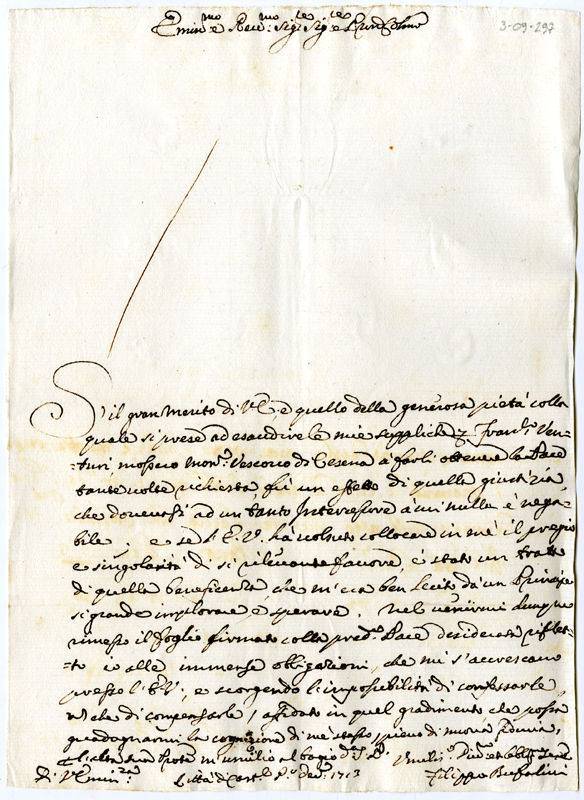 3-09-297
Emin.mo e Rev.mo Sig.re Sig.re e Pron Colmo
S'il gran merito di V.E. e quello della generosa pietà colla
quale si prese ad esaudire le mie suppliche Franc.o Ven-
-turi mossero Mons.r Vescovo di Cesena à farli ottenere la Pace
tante volte richiesta, fù un effetto di quella giustizia
che doveasi ad un tanto Intercessore à cui nulla è nega-
bile. e se l'E.V. hà voluto collocare in me il pregio
e singolarità di si rilevante favore, è stato un tratto
di quella beneficenza, che m'era ben lecito da un Principe
si grande implorare, e sperare. Nel venirmi dunque
rimesso il foglio firmato colla pred.a Pace desiderata riflet-
-to io alle immense obbligazioni, che mi s'accrescano
presso l'E.V., e scorgendo l'impossibilità di confessarle,
non che di compensarle, affidato in quel gradimento che possa
guadagnarmi la cognizione di me stesso, pieno di nuova fiducia,
m'umilio al bagio
di V. Emin.za Città di Cast.o P.o Dec. 1713
Filippo Bufalini